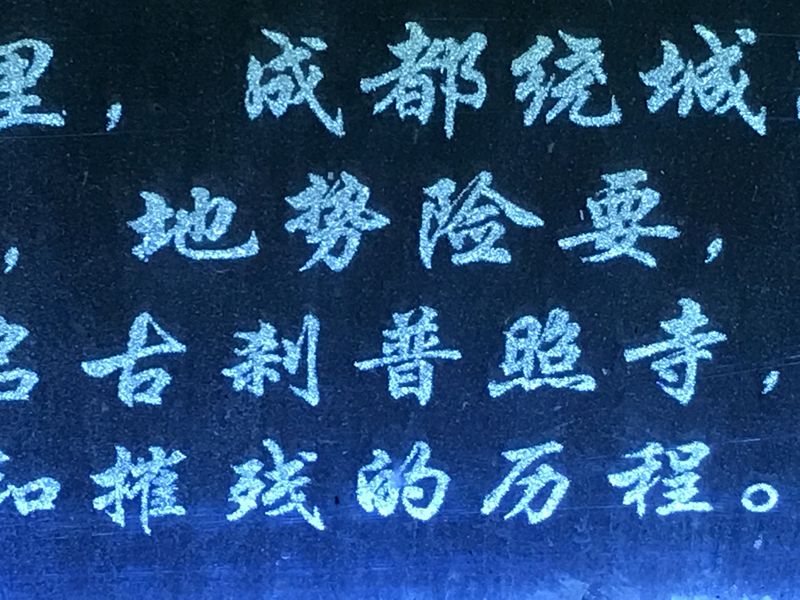 里，成都绕城
，地势险要，
名古刹普照寺，
和摧残的历程。